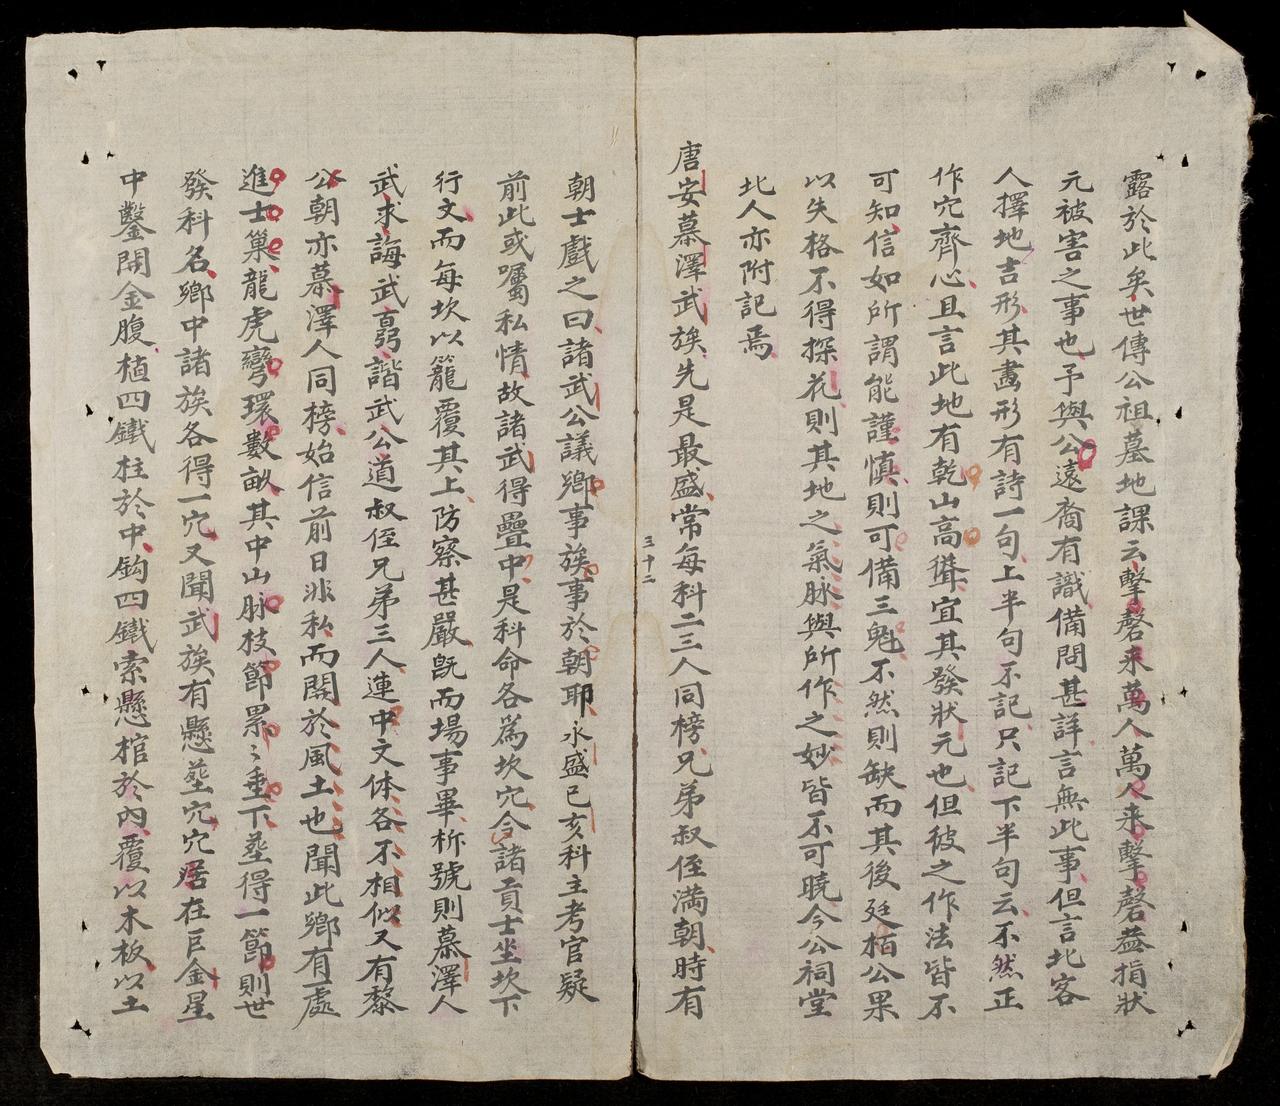 露於此矣世傳公祖墓地課云擊磬来萬人萬人来擊磬蓋指狀
元被害之事也予與公遠裔有識備問甚詳言無此事但言北客
人擇地吉形其畫形有詩一句上半句不記只記下半句云不然正
作穴齊心且言此地有乾山高聳宜其發狀元也但彼之作法皆不
可知信如所謂能謹慎則可備三魁不然則缺而其後廷栢公果
以失格不得探花則其地之氣脉與所作之妙皆不可曉今公祠堂
北人亦附記焉
唐安慕澤武族先是最盛常每科二三人同榜兄弟叔侄満朝時有
三十二
朝士戲之曰諸武公議鄉事族事於朝耶永盛已亥科主考官疑
前此或囑私情故諸武得疊中是科命各爲坎穴令諸貢士坐坎下
行文而每坎以籠覆其上防察甚嚴旣而場事畢柝號則慕澤人
武求誨武㬎諧武公道叔侄兄弟三人連中文体各不相似又有黎
公朝亦慕澤人同榜始信前日非私而關於風土也聞此鄉有一處
進士巢龍虎彎環數畝其中山脉枝節累〻垂下塟得一節則世
發科名鄉中諸族各得一穴又聞武族有懸塟穴穴居在巨金星
中鑿開金腹植四鐵柱於中鈎四鐵索懸棺於内覆以木板以土